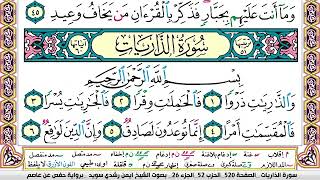 وَمَا أَنتَ عَلَيْهِم بِجَبَّارٍ فَذَكِّرْ بِالْقُرْءَانِ مَن يَخَافُ وَعِيدِ ٤٥
سُورَةُ الذَّارِيَاتِ
بِسْمِ اللَّهِ الرَّحْمَٰنِ الرَّحِيمِ
وَالذَّٰرِيَٰتِ ذَرْوًا ١ فَالْحَٰمِلَٰتِ وِقْرًا ٢ فَالْجَٰرِيَٰتِ يُسْرًا ٣
فَالْمُقَسِّمَٰتِ أَمْرًا ٤ إِنَّمَا تُوعَدُونَ لَصَادِقٌ ٥ وَإِنَّ الدِّينَ لَوَٰقِعٌ ٦
سورة الذاريات الصفحة 520 الحزب 52 الجزء 26 بصوت الشيخ أيمن رشدي سويد برواية حفص عن عاصم